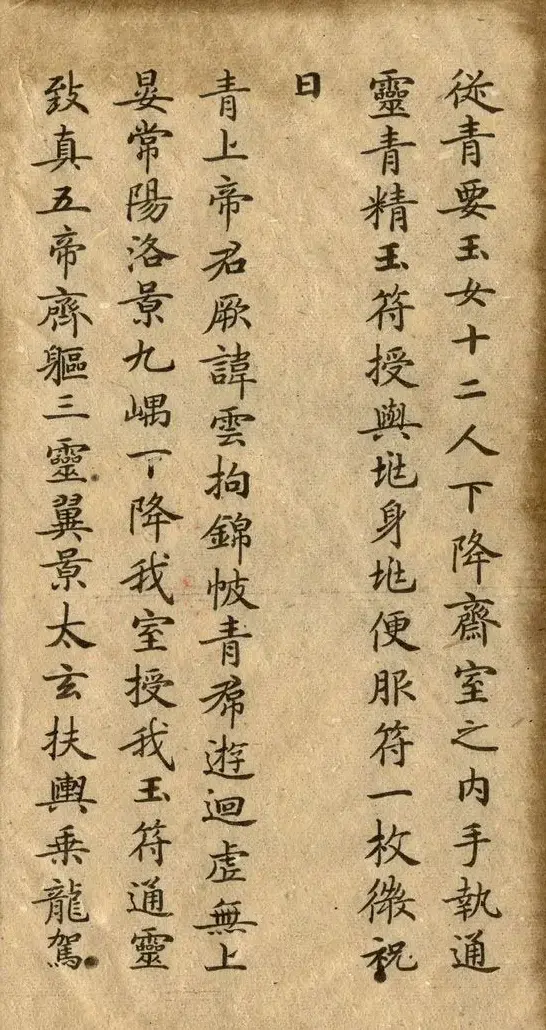 從青要玉女十二人下降齋室之内手執通
靈青精玉符授與兆身兆便服符一枚微祝
曰
青上帝君厥諱雲拘錦帔青帬遊迴虛無上
晏常陽洛景九嵎下降我室授我玉符通靈
致真五帝齊軀三靈翼景太玄扶輿乘龍駕